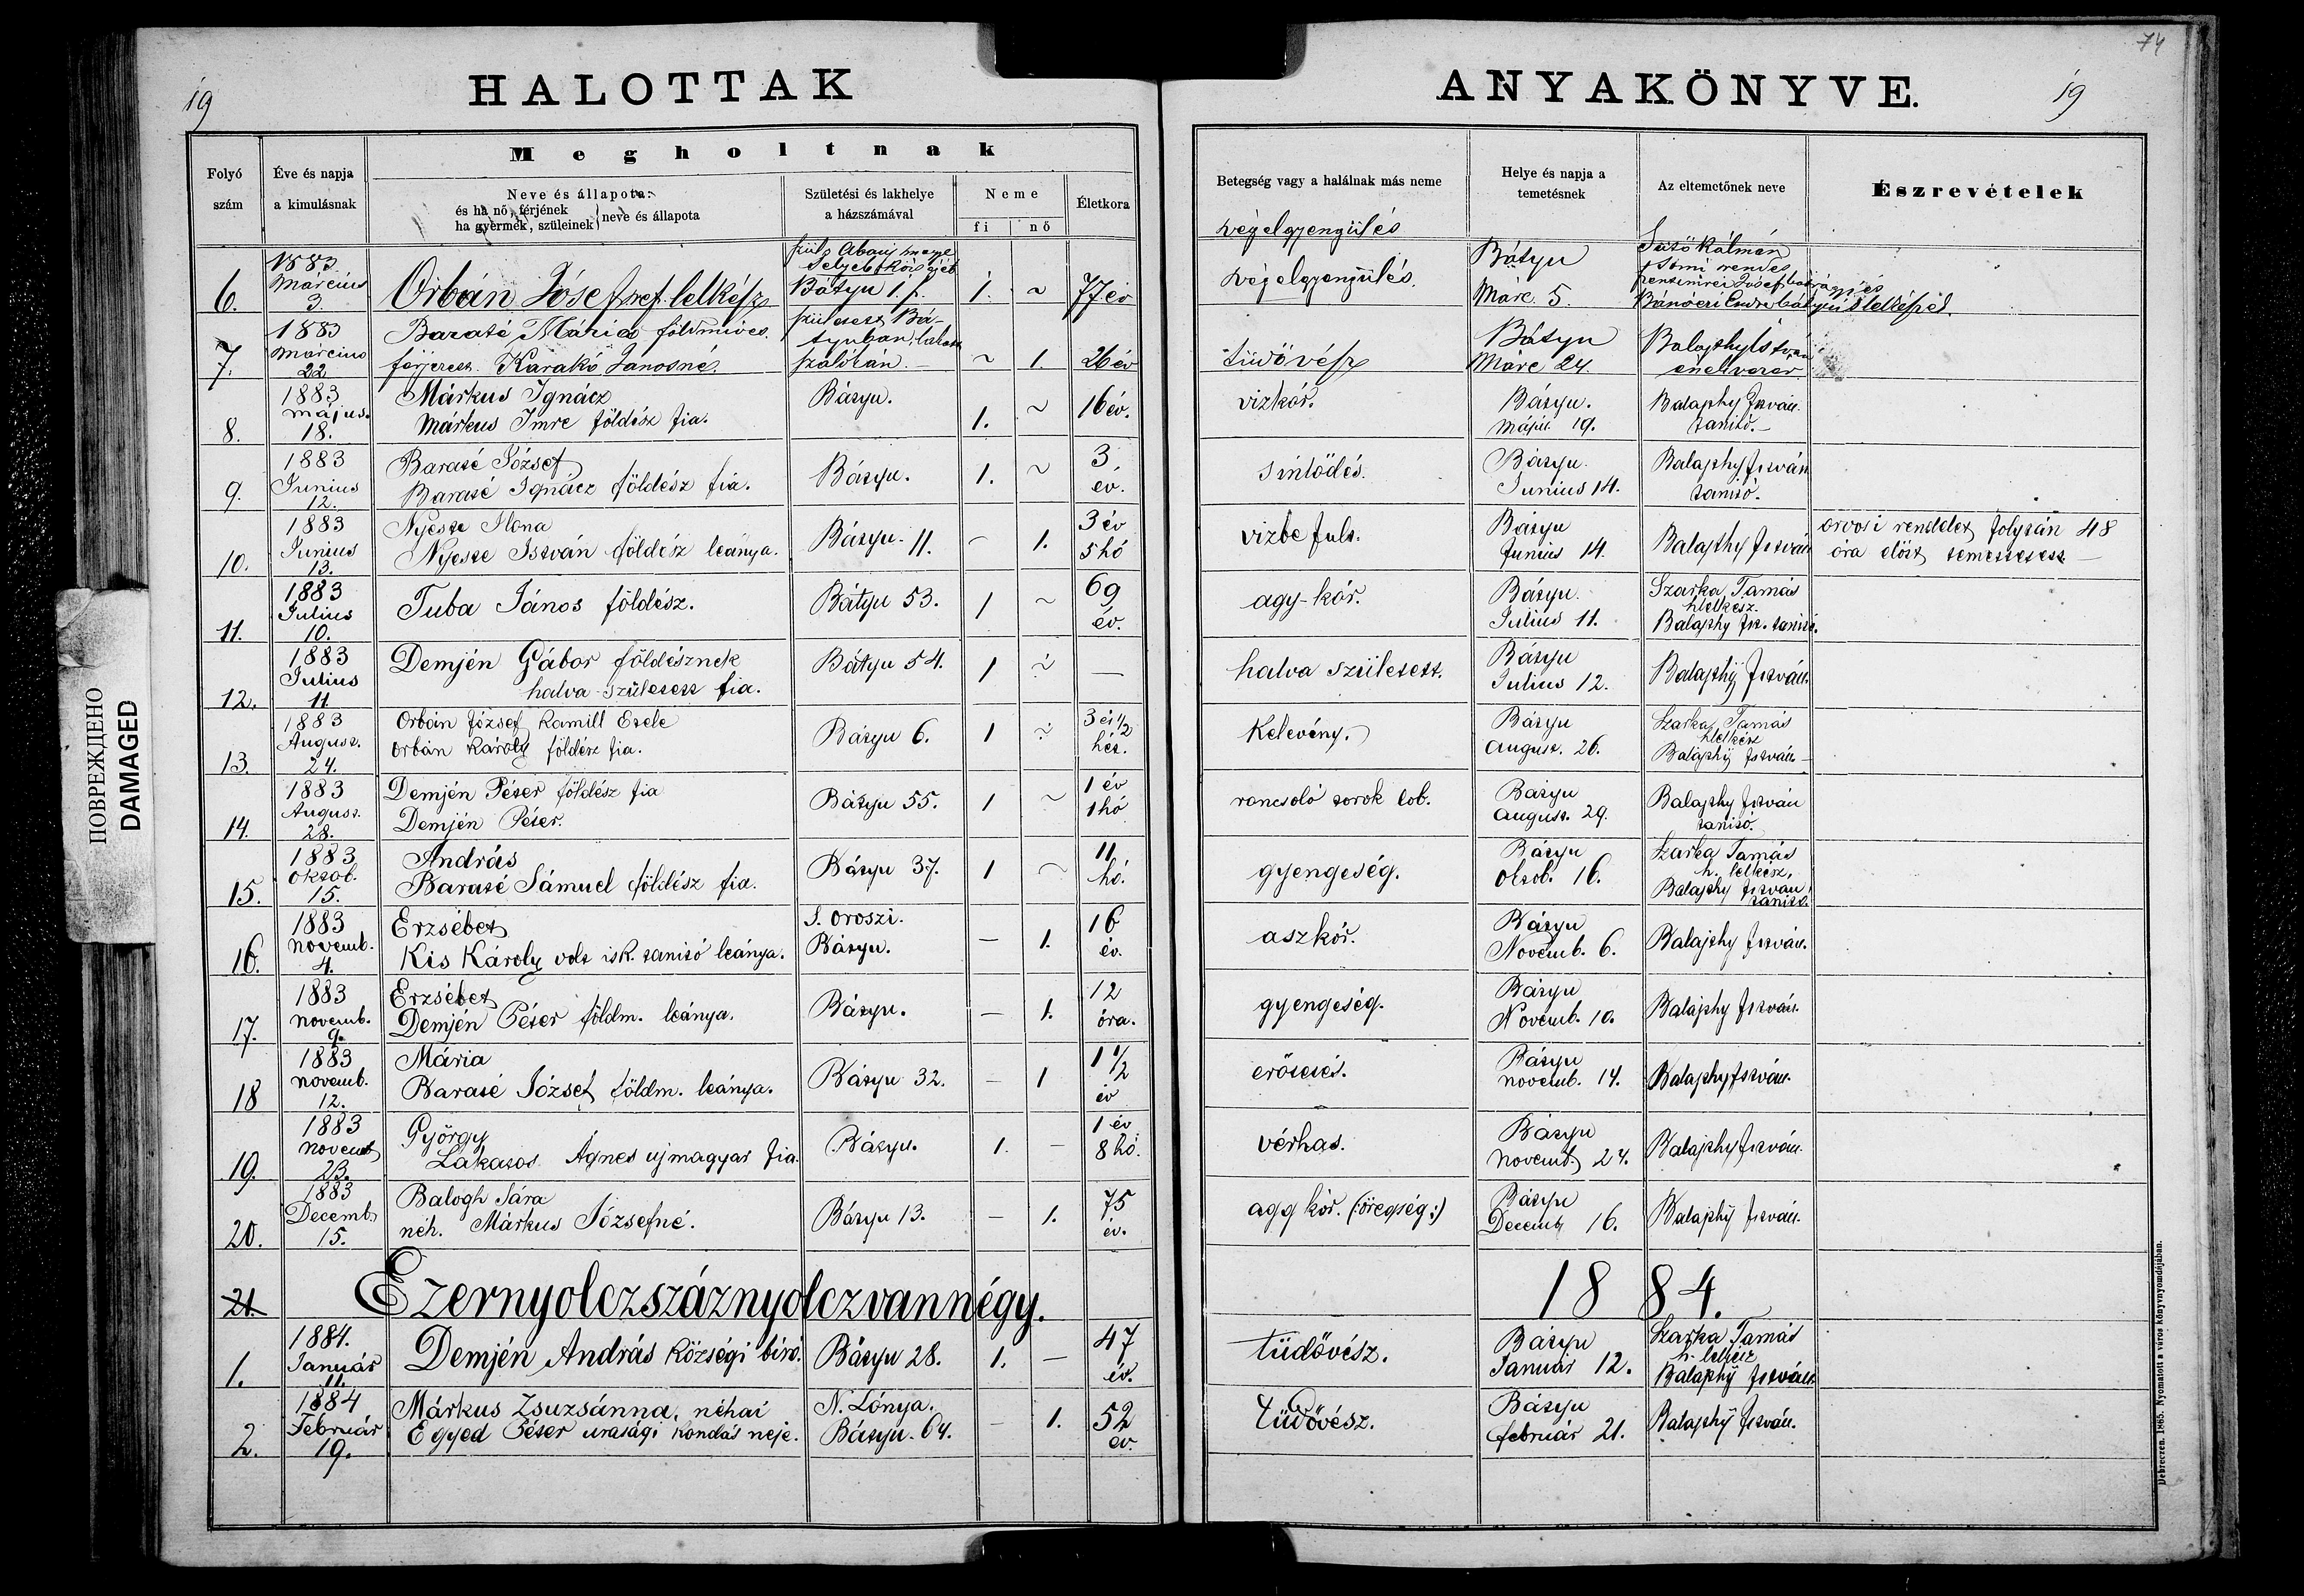 74
19
HALOTTAK
ANYAKÖNYVE.
19
Folyó szám
Éve és napja a kimulásnak
Megholtnak
Neve és állapota:
és ha nő, férjének
ha gyermek, szüleinek
neve és állapota
Születési és lakhelye a házszámával
Neme
fi
nő
Életkora
Betegség vagy a halálnak más neme
Helye és napja a temetésnek
Az eltemetőnek neve
Észrevételek
végelgyengülés
6. 1883 Március 3. Orbán Jósef ref. lelkész Bátyu 1. 1. ~ 77 év végelgyengülés. Bátyu Márc. 5.
7. 1883 Március 22 Baraté Mária földmives férjezett Karakó Janosné. született Bátyuban, szalókán. ~ 1. 26 év tüdővész Bátyu Márc 24. Balajthy István énekvezér
8. 1883 május. 18. Márkus Ignácz Márkus Imre földész fia. Bátyu. 1. ~ 16 év. vizkór. Bátyu. Május. 19. Balajthy István. tanitó.
9. 1883 Junius 12. Baraté József Baraté Ignácz földész fia. Bátyu. 1. ~ 3 év. sintödés. Bátyu. Junius 14. Balajthy István tanitó.
10. 1883 Junius 13. Nyeste Ilona Nyeste István földész leánya. Bátyu. 11. – 1. 3 év 5 hó vizbe fult. Bátyu Junius 14. Balajthy István orvosi rendelet folytán 48 óra előtt temettetett —
11. 1883 Julius 10. Tuba János földész. Bátyu 53. 1 ~ 69 év. agy-kór. Bátyu. Julius 11. Szarka Tamás h lelkész. Balajthy Ist. tanitó.
12. 1883 Julius 11. Demjén Gábor földésznek halva született fia. Bátyu 54. 1 ~ — halva született. Bátyu Julius 12. Balajthy István.
13. 1883 August. 24. Orbán József Kamill Etele Orbán Károly földész fia. Bátyu 6. 1 ~ 3 és 1/2 hét. Kelevény. Bátyu August. 26. Szarka Tamás h lelkész Balajthy István.
14. 1883 August. 28. Demjén Péter földész fia Demjén Péter. Bátyu 55. 1 ~ 1 év 1 hó roncsoló torok lob. Bátyu August. 29. Balajthy István tanitó.
15. 1883 Oktob. 15. András Baraté Sámuel földész fia. Bátyu 37. 1 ~ 11 hó. gyengeség. Bátyu Oktob. 16. Szarka Tamás h. lelkész, Balajthy István tanitó.
16. 1883 novemb. 4. Erzsébet Kis Károly volt isk. tanitó leánya. S. Oroszi. Bátyu. – 1. 16 év. aszkór. Bátyu Novemb. 6. Balajthy István.
17. 1883 novemb. 9. Erzsébet Demjén Péter földm. leánya. Bátyu. – 1. 12 óra. gyengeség. Bátyu Novemb. 10. Balajthy István.
18 1883 novemb. 12. Mária Baraté József földm. leánya. Bátyu 32. – 1 1 1/2 év Bátyu novemb. 14. Balajthy István.
19. 1883 novemb 23. György Lakatos Ágnes ujmagyar fia. Bátyu. 1. – 1 év 8 hó. vérhas. Bátyu novemb. 24. Balajthy István.
20. 1883 Decemb. 15. Balogh Sára néh. Márkus Józsefné. Bátyu 13. – 1. 75 év. agg kór. (:öregség:) Bátyu Decemb 16. Balajthy István.
21. Ezernyolczszáznyolczvannégy. 1884.
1. 1884. Január 11. Demjén András községi biró. Bátyu 28. 1. – 47 év. tüdővész. Bátyu Január 12. Szarka Tamás h. lelkész Balajthy István
2. 1884 Február 19. Márkus Zsuzsánna, néhai Egyed Péter urasági kondás neje. N. Lónya. Bátyu. 64. – 1. 52 év. tüdővész. Bátyu február 21. Balajthy István.
Debreczen. 1865. Nyomatott a város könyvnyomdájában.
ПОВРЕЖДЕНО
DAMAGED